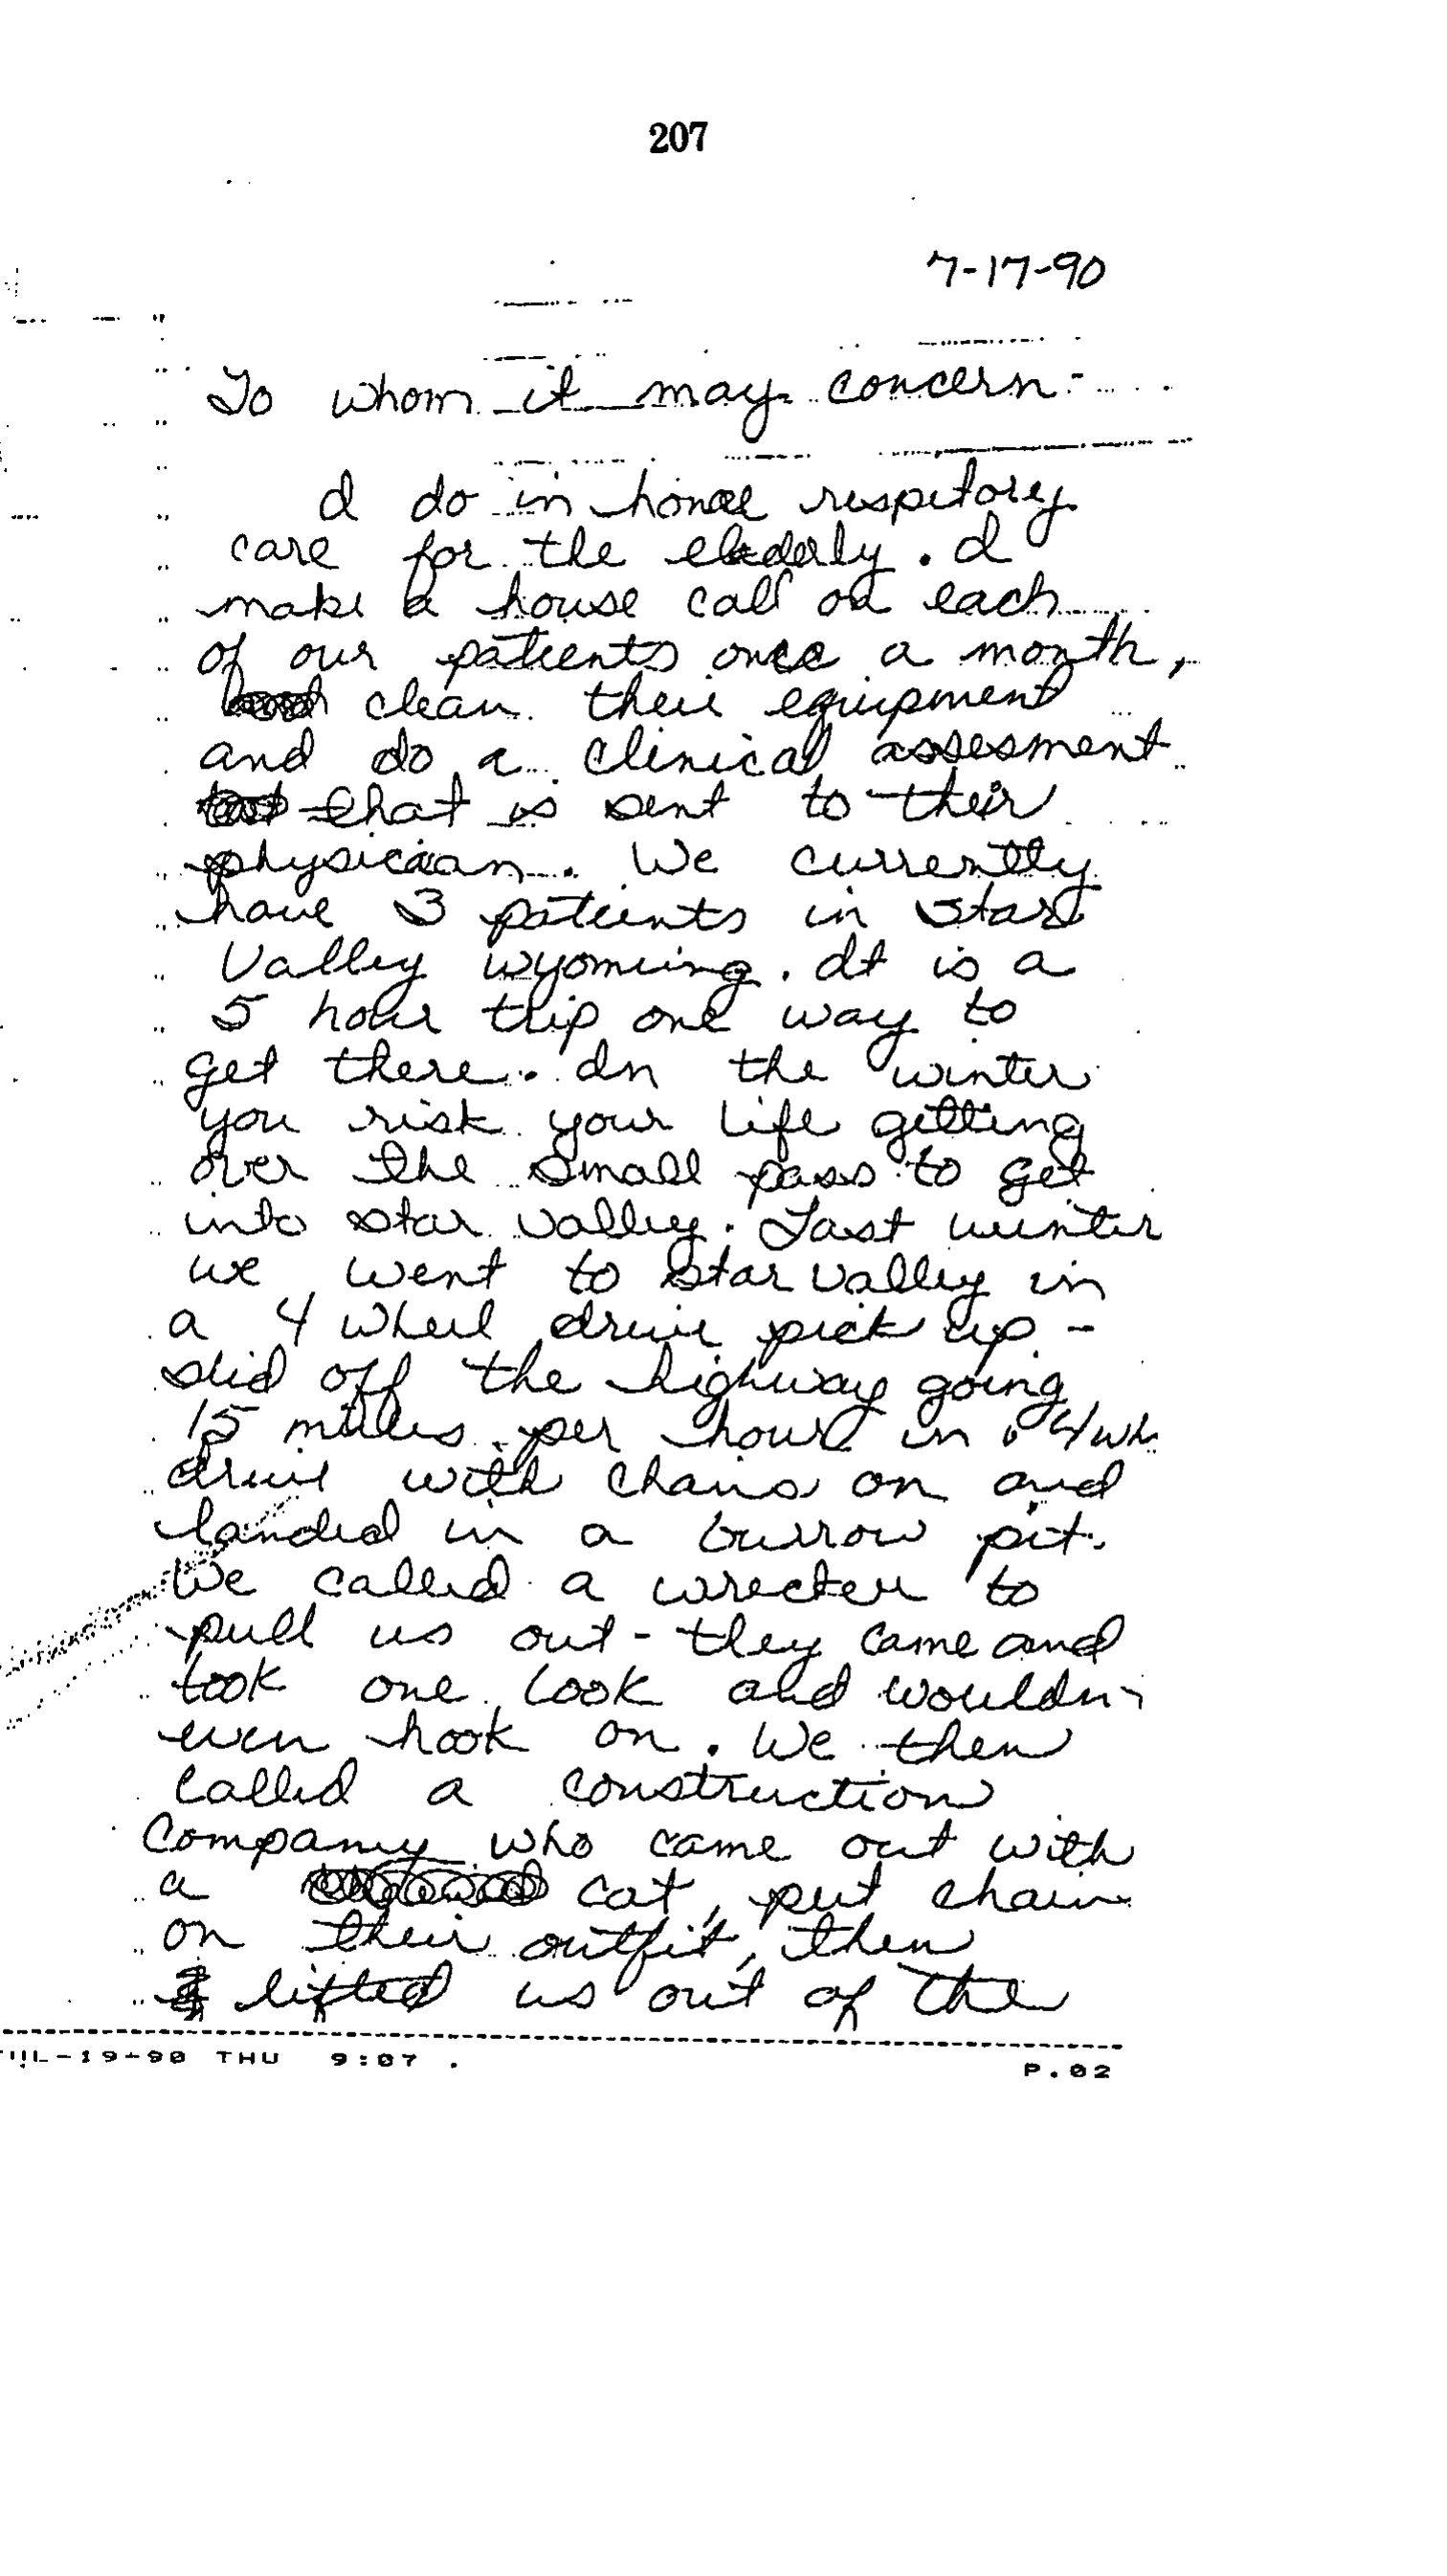 207
7-17-90
To whom it may concern -
I do in home respitory
care for the elederly. I
make a house call on each
of our patients once a month,
clean their equipment
and do a clinical assesment
that is sent to their
physician. We currently
have 3 patients in Star
Valley Wyoming. It is a
5 hour trip one way to
get there. In the winter
you risk your life getting
over the small pass to get
into star valley. Last winter
we went to star valley in
a 4 wheel drive pick up -
slid off the highway going
15 miles per hour in 4 wh.
drive with chains on and
landed in a burrow pit.
We called a wrecker to
pull us out - they came and
took one look and wouldn
even hook on. We then
called a construction
company who came out with
a cat, put chain
on their outfit, then
lifted us out of the
JUL-19-90 THU 9:07
P.02